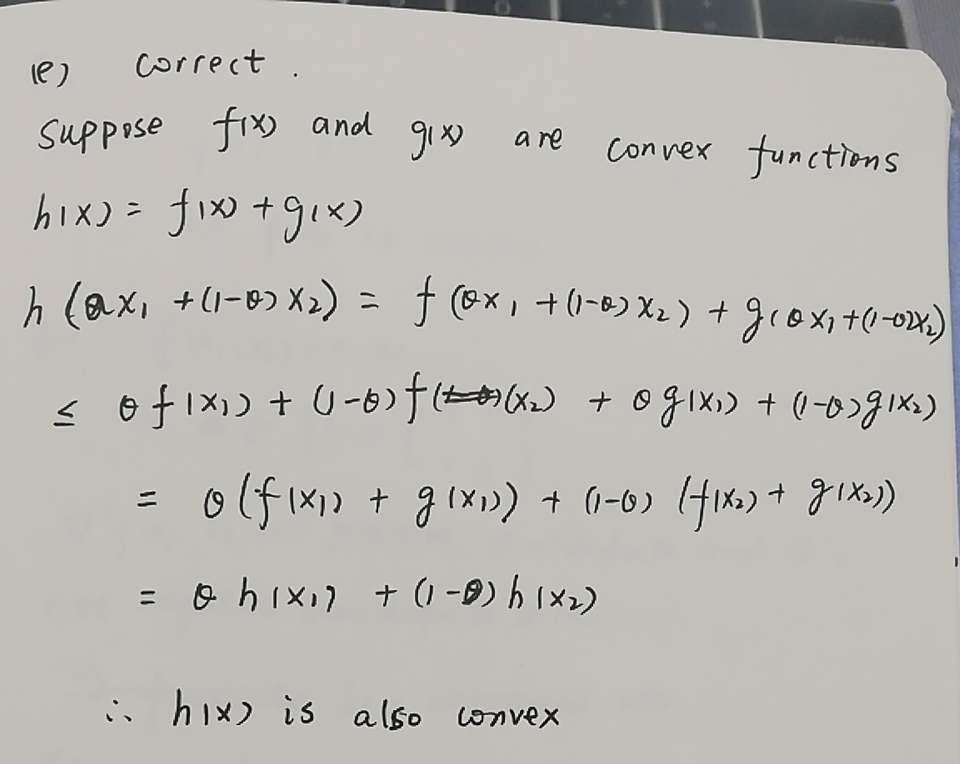 (e) correct.
Suppose f(x) and g(x) are convex functions
h(x) = f(x) + g(x)
h(θx₁ + (1-θ)x₂) = f(θx₁ + (1-θ)x₂) + g(θx₁ + (1-θ)x₂)
≤ θf(x₁) + (1-θ)f(x₂) + θg(x₁) + (1-θ)g(x₂)
= θ(f(x₁) + g(x₁)) + (1-θ)(f(x₂) + g(x₂))
= θh(x₁) + (1-θ)h(x₂)
∴ h(x) is also convex